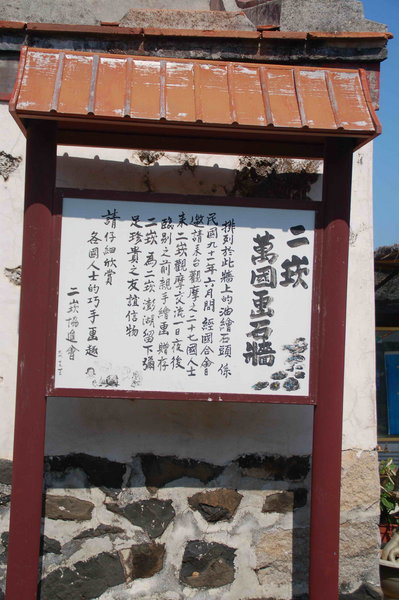 二崁
萬國畫石牆
排列於此牆上的油繪石頭 係
民國九十二年六月間 經國合會
邀請來台觀摩之二十七國人士
來二崁觀摩交流一日夜後
臨別之前親手繪畫贈存
二崁 為二崁澎湖留下彌
足珍貴之友誼信物
請仔細欣賞
各國人士的巧手畫趣
二崁協進會